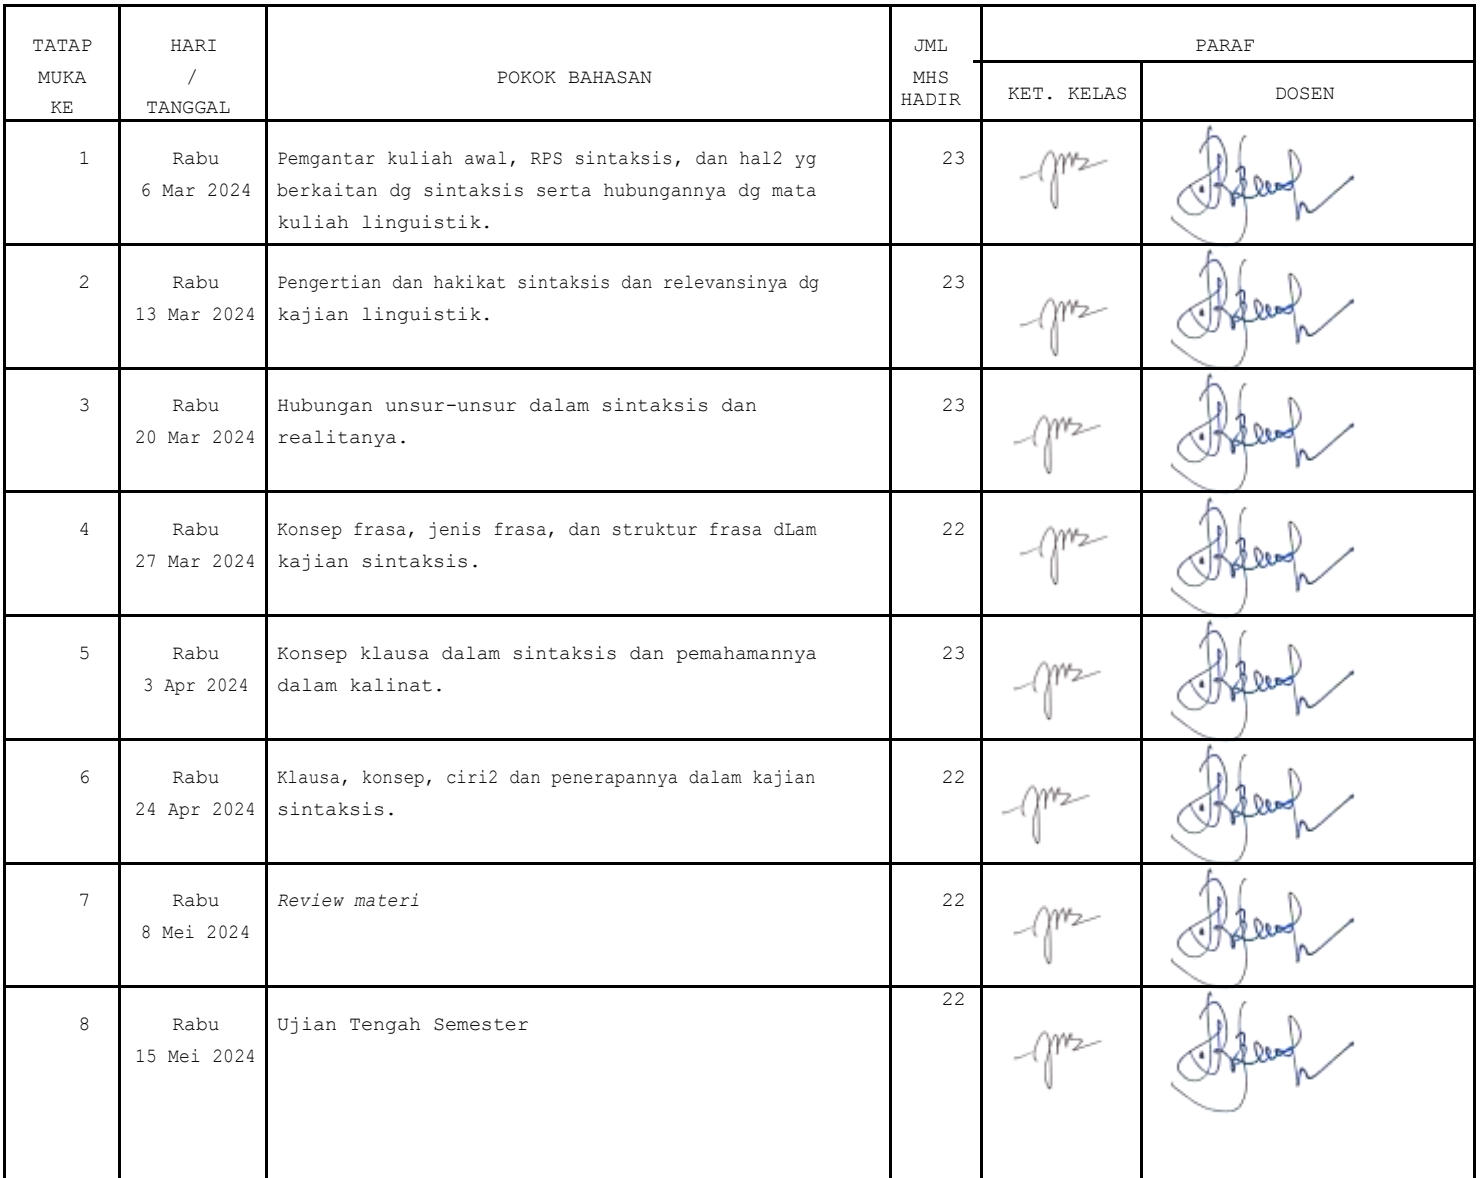 TATAP MUKA KE
HARI / TANGGAL
POKOK BAHASAN
JML MHS HADIR
PARAF
KET. KELAS
DOSEN
1
Rabu
6 Mar 2024
Pemgantar kuliah awal, RPS sintaksis, dan hal2 yg
berkaitan dg sintaksis serta hubungannya dg mata
kuliah linguistik.
23
2
Rabu
13 Mar 2024
Pengertian dan hakikat sintaksis dan relevansinya dg
kajian linguistik.
23
3
Rabu
20 Mar 2024
Hubungan unsur-unsur dalam sintaksis dan
realitanya.
23
4
Rabu
27 Mar 2024
Konsep frasa, jenis frasa, dan struktur frasa dLam
kajian sintaksis.
22
5
Rabu
3 Apr 2024
Konsep klausa dalam sintaksis dan pemahamannya
dalam kalinat.
23
6
Rabu
24 Apr 2024
Klausa, konsep, ciri2 dan penerapannya dalam kajian
sintaksis.
22
7
Rabu
8 Mei 2024
Review materi
22
8
Rabu
15 Mei 2024
Ujian Tengah Semester
22